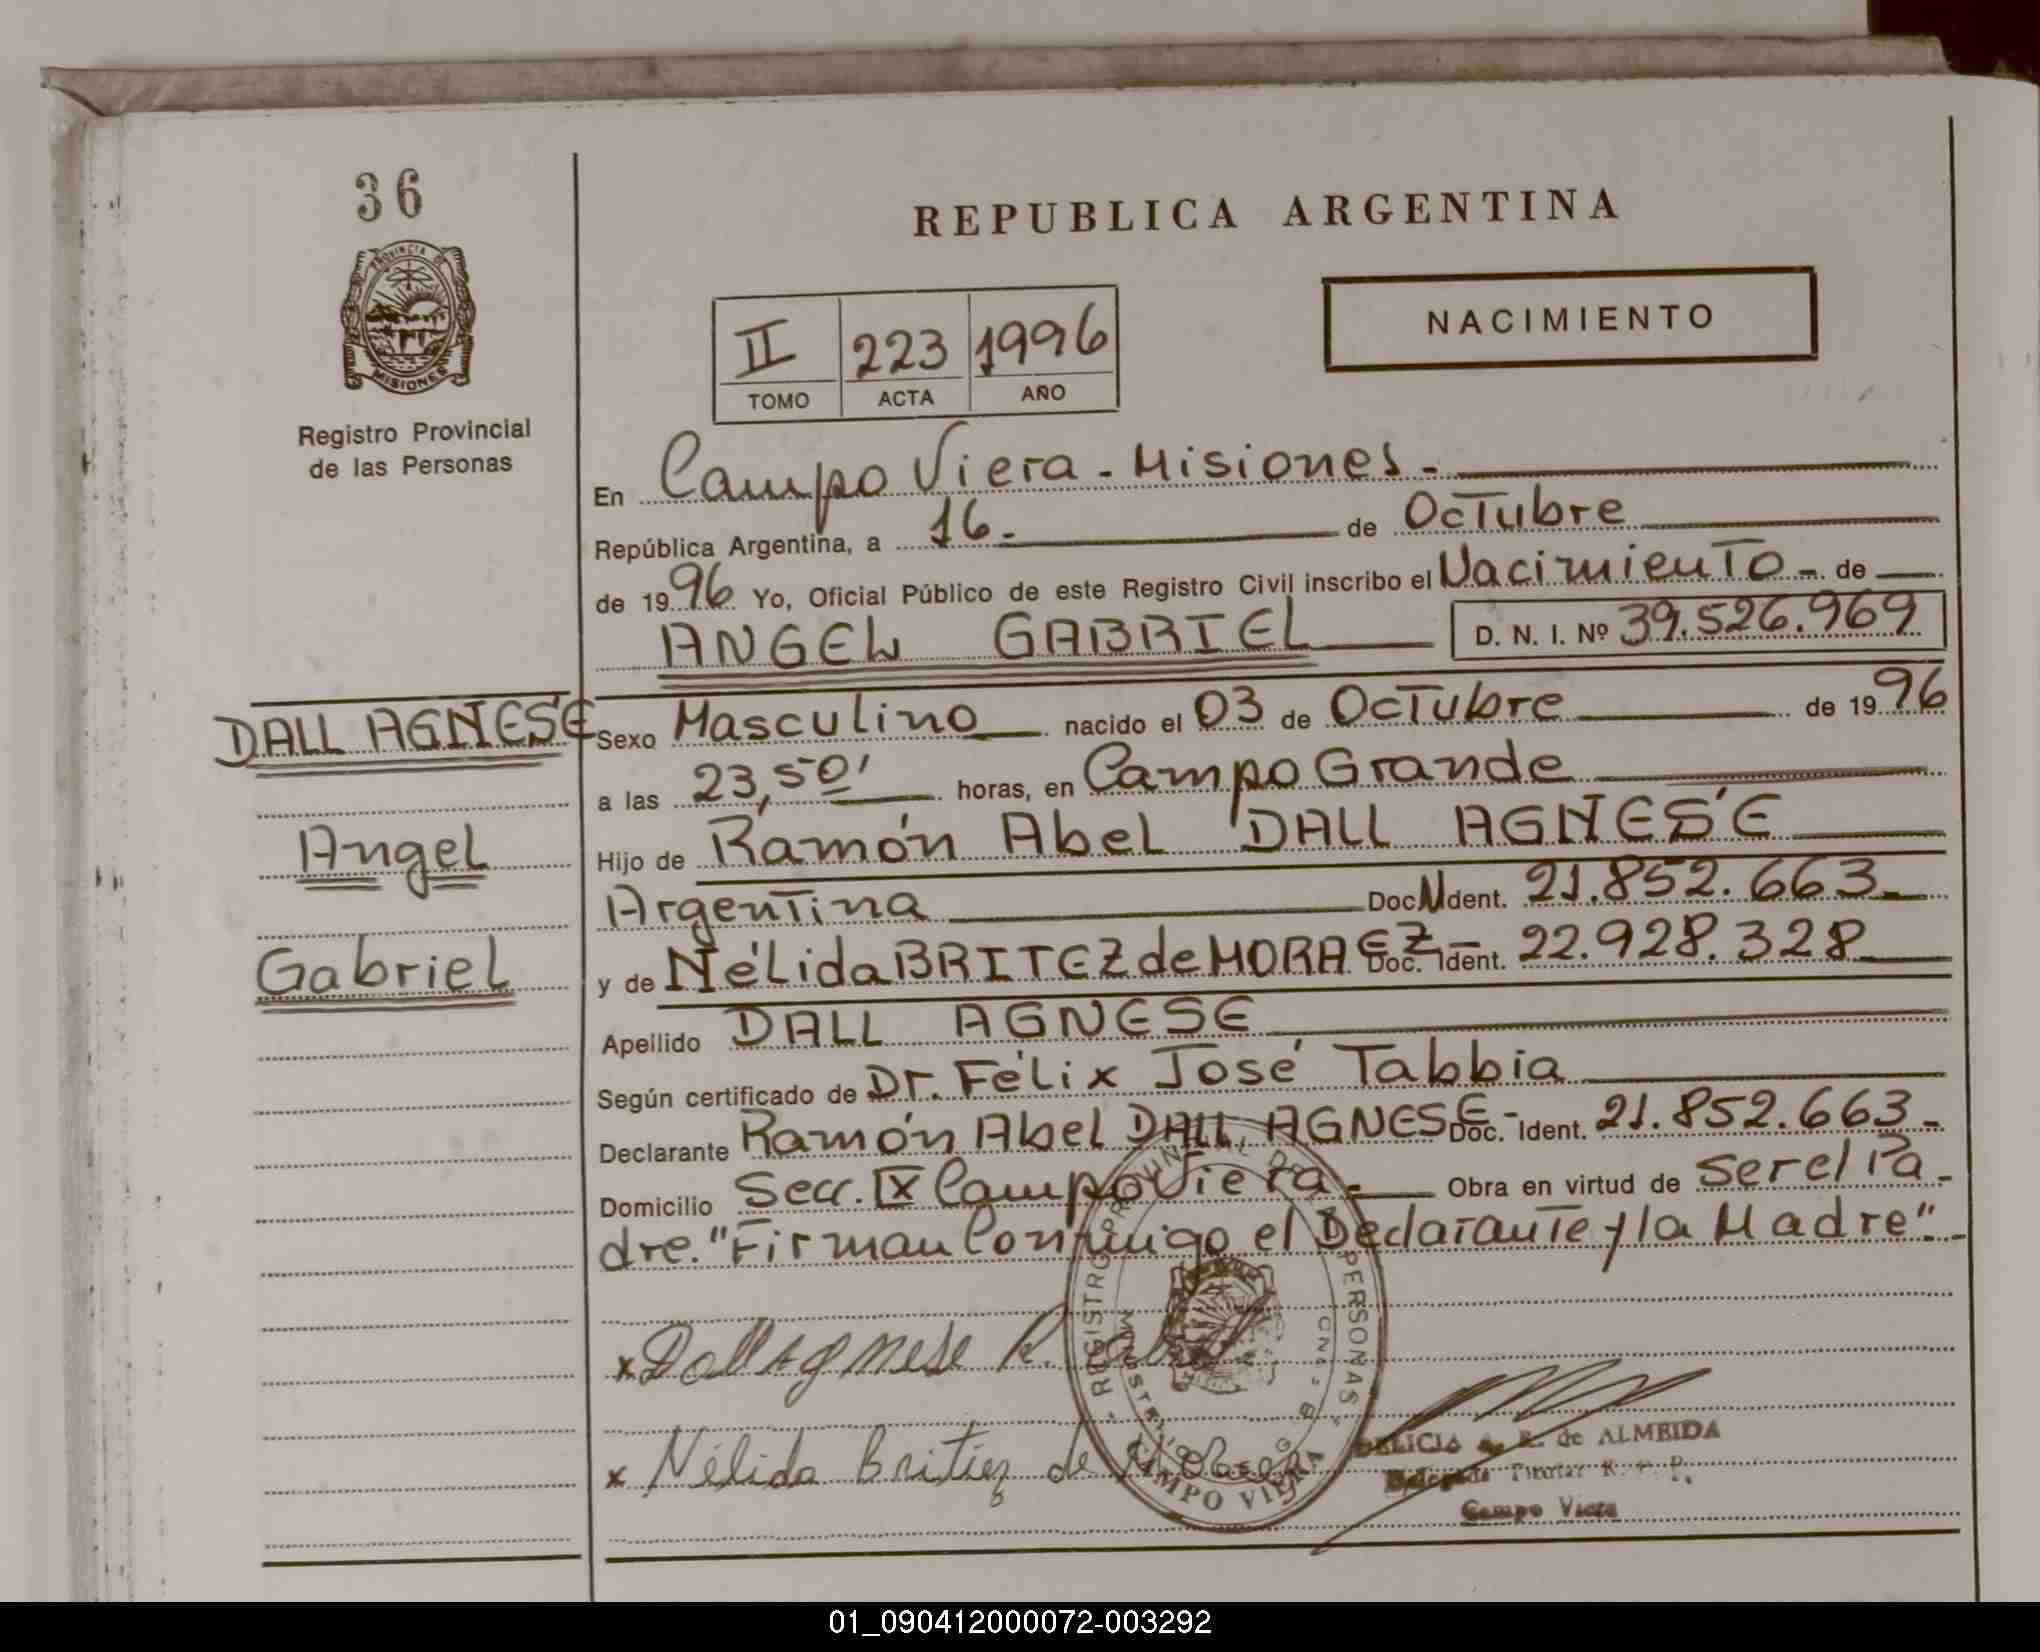 36
PROVINCIA DE
MISIONES
Registro Provincial
de las Personas
REPUBLICA ARGENTINA
NACIMIENTO
II 223 1996
TOMO ACTA AÑO
En Campo Viera - Misiones -
República Argentina, a 16 - de Octubre
de 1996 Yo, Oficial Público de este Registro Civil inscribo el Nacimiento - de
ANGEL GABRIEL D. N. I. Nº 39.526.969
DALL AGNESE
Angel
Gabriel
Sexo Masculino nacido el 03 de Octubre de 1996
a las 23,50' horas, en Campo Grande
Hijo de Ramón Abel DALL AGNESE
Argentina Doc. Ident. 21.852.663 -
y de Nélida BRITEZ de MORAEZ - Doc. Ident. 22.928.328
Apellido DALL AGNESE
Según certificado de Dr. Félix José Tabbia
Declarante Ramón Abel DALL AGNESE - Doc. Ident. 21.852.663 -
Domicilio Secc. IX Campo Viera - Obra en virtud de ser el Pa-
dre. "Firman Conmigo el Declarante y la Madre". -
x Dall Agnese R.
x Nélida Britiez de
REGISTRO PROVINCIAL DE LAS PERSONAS
CAMPO VIERA
DELICIA A. R. de ALMEIDA
Delegada Titular R. P. P.
Campo Viera
01_090412000072-003292